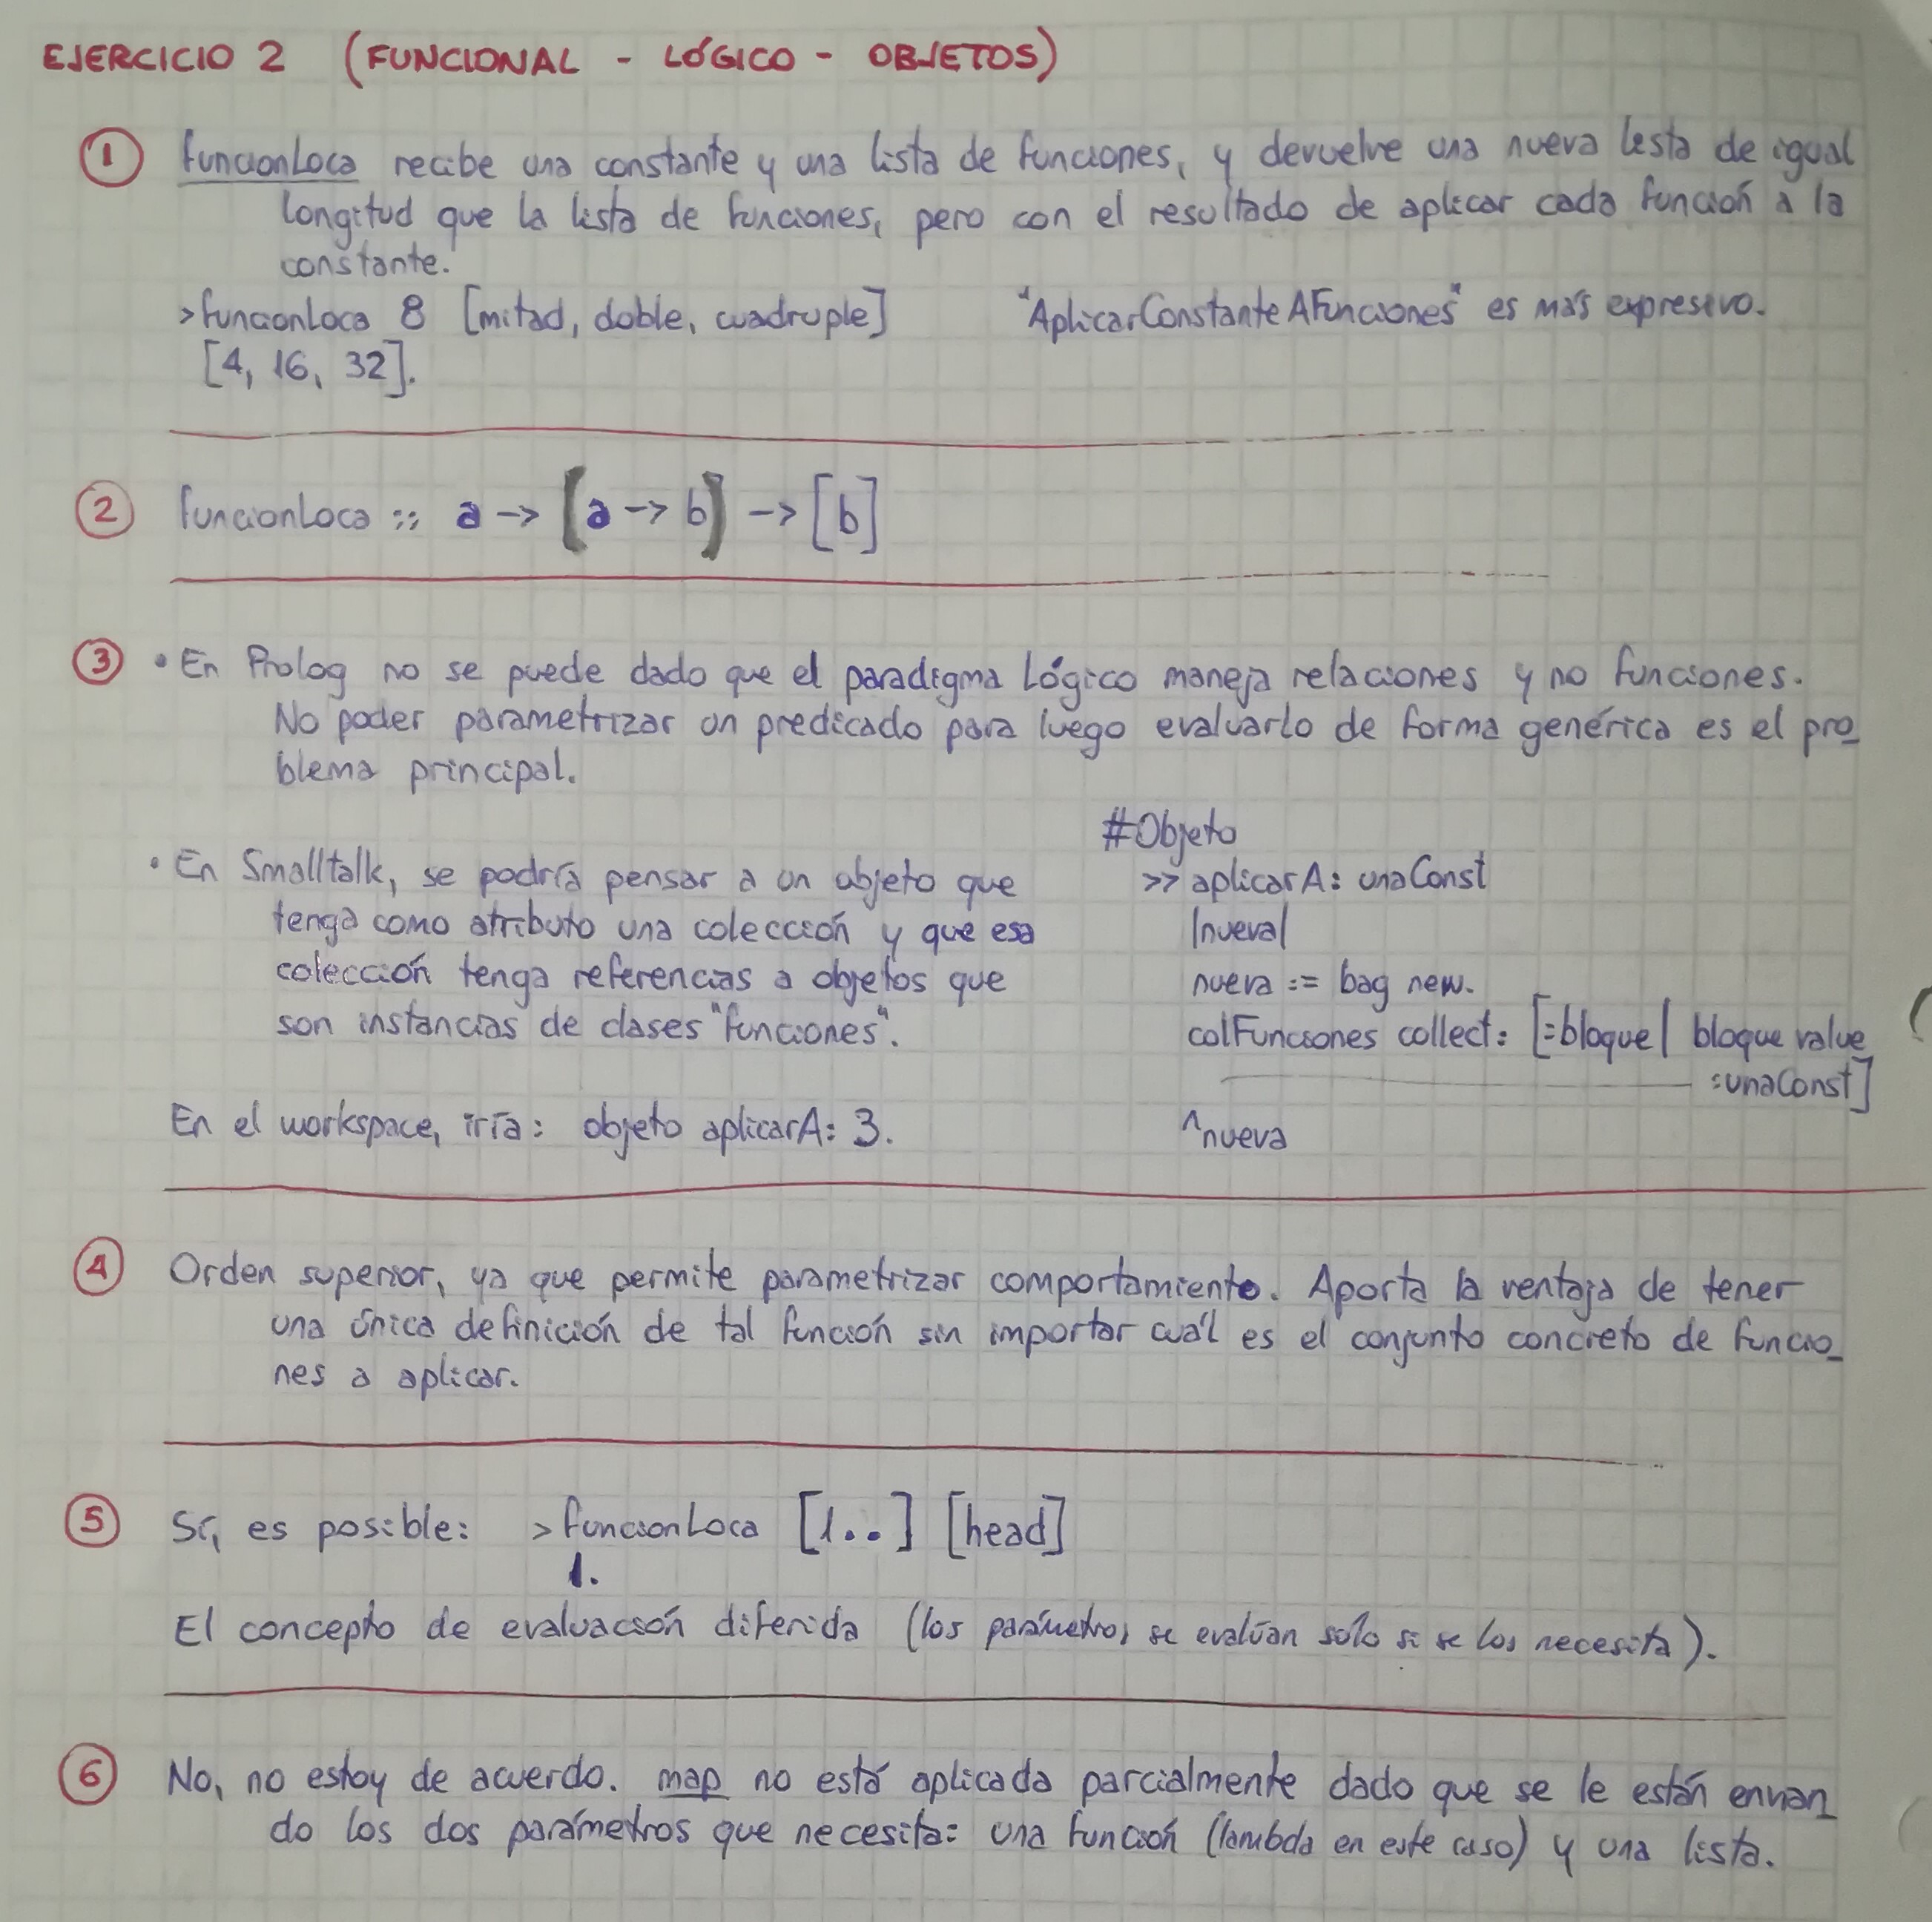 EJERCICIO 2 (FUNCIONAL - LÓGICO - OBJETOS)
1 funcionLoca recibe una constante y una lista de funciones, y devuelve una nueva lista de igual
longitud que la lista de funciones, pero con el resultado de aplicar cada función a la
constante.
>funcionLoca 8 [mitad, doble, cuadruple] "AplicarConstanteAFunciones" es más expresivo.
[4, 16, 32].
2 funcionLoca :: a -> [a -> b] -> [b]
3 • En Prolog no se puede dado que el paradigma Lógico maneja relaciones y no funciones.
No poder parametrizar un predicado para luego evaluarlo de forma genérica es el pro_
blema principal.
• En Smalltalk, se podría pensar a un objeto que
tenga como atributo una colección y que esa
colección tenga referencias a objetos que
son instancias de clases "funciones".
En el workspace, iría: objeto aplicarA: 3.
#Objeto
>> aplicarA: unaConst
|nueva|
nueva := bag new.
colFunciones collect: [:bloque | bloque value
:unaConst]
^nueva
4 Orden superior, ya que permite parametrizar comportamiento. Aporta la ventaja de tener
una única definición de tal función sin importar cuál es el conjunto concreto de funcio_
nes a aplicar.
5 Sí, es posible: >funcionLoca [1..] [head]
1.
El concepto de evaluación diferida (los parámetros se evalúan solo si se los necesita).
6 No, no estoy de acuerdo. map no está aplicada parcialmente dado que se le están envian_
do los dos parámetros que necesita: una función (lambda en este caso) y una lista.